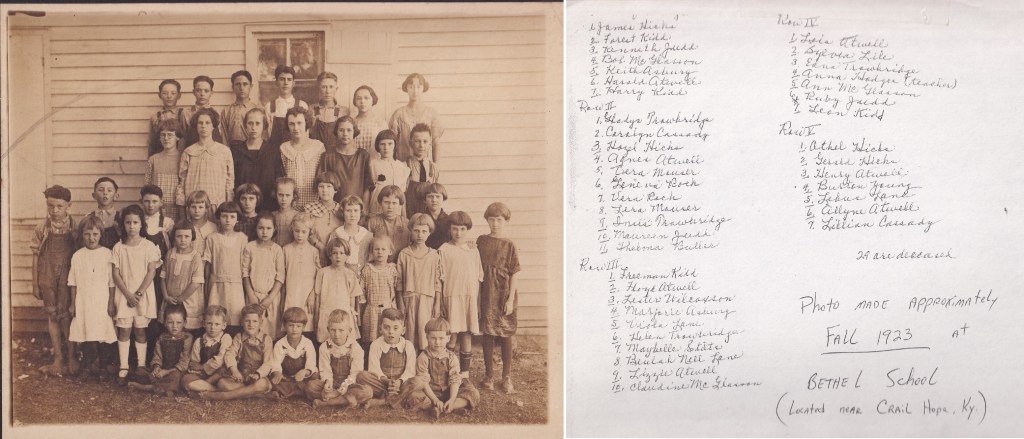 1. James "Hicks"
2. Forest Kidd
3. Kenneth Judd
4. Bob McGlasson
5. Keith Asbury
6. Harold Atwell
7. Harry Kidd
Row II
1. Gladys Trowbridge
2. Carolyn Cassady
3. Hazel Hicks
4. Agnes Atwell
5. Dora Mouser
6. Geneva
7. Vera
8. Lera Mouser
9. Trowbridge
10. Maureen Judd
11. Thelma Butler
Row III
1. Freeman Kidd
2. Hoye Atwell
3. Lester Wilcoxson
4. Marjorie Asbury
5. Lane
6. Helen Trowbridge
7. Maybelle
8. Beulah Nell Lane
9. Lizzie Atwell
10. Claudine McGlasson
Row IV
1. Lois Atwell
2. Sylvea Lile
3. Edna Trowbridge
4. Anna Hodges (teacher)
5. Ann McGlasson
6. Ruby Judd
7. Leon Kidd
Row V
1. Othel Hicks
2. Gerald Hicks
3. Henry Atwell
4. Burton Young
5. Lane
6. Allyne Atwell
7. Lillian Cassady
29 are deceased
Photo made approximately
Fall 1923 at
Bethel School
(Located near Crail Hope, Ky.)